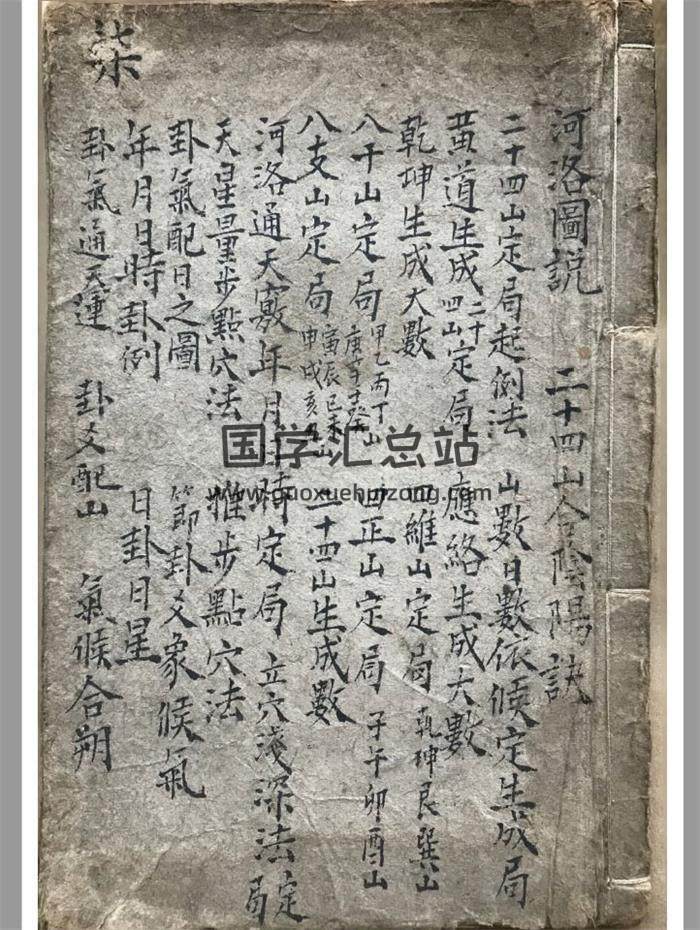 柒
河洛圖説 二十四山合陰陽訣
二十四山定局起例法 山數日數依候定生成局
黄道生成二十四山定局 應絡生成大數
乾坤生成大數 四維山定局 乾坤艮巽山
八干山定局 甲乙丙丁山庚辛壬癸 四正山定局 子午卯酉山
八支山定局 寅辰巳未申戌亥丑山 二十四山生成數
河洛通天竅年月 時定局 立穴淺深法定局
天星量步點穴法 推步點穴法
卦氣配日之圖 節卦爻象候氣
年月日時卦例 日卦日星
卦氣通天運 卦爻配山 氣候合朔
国学汇总站
www.guoxuehuizong.com